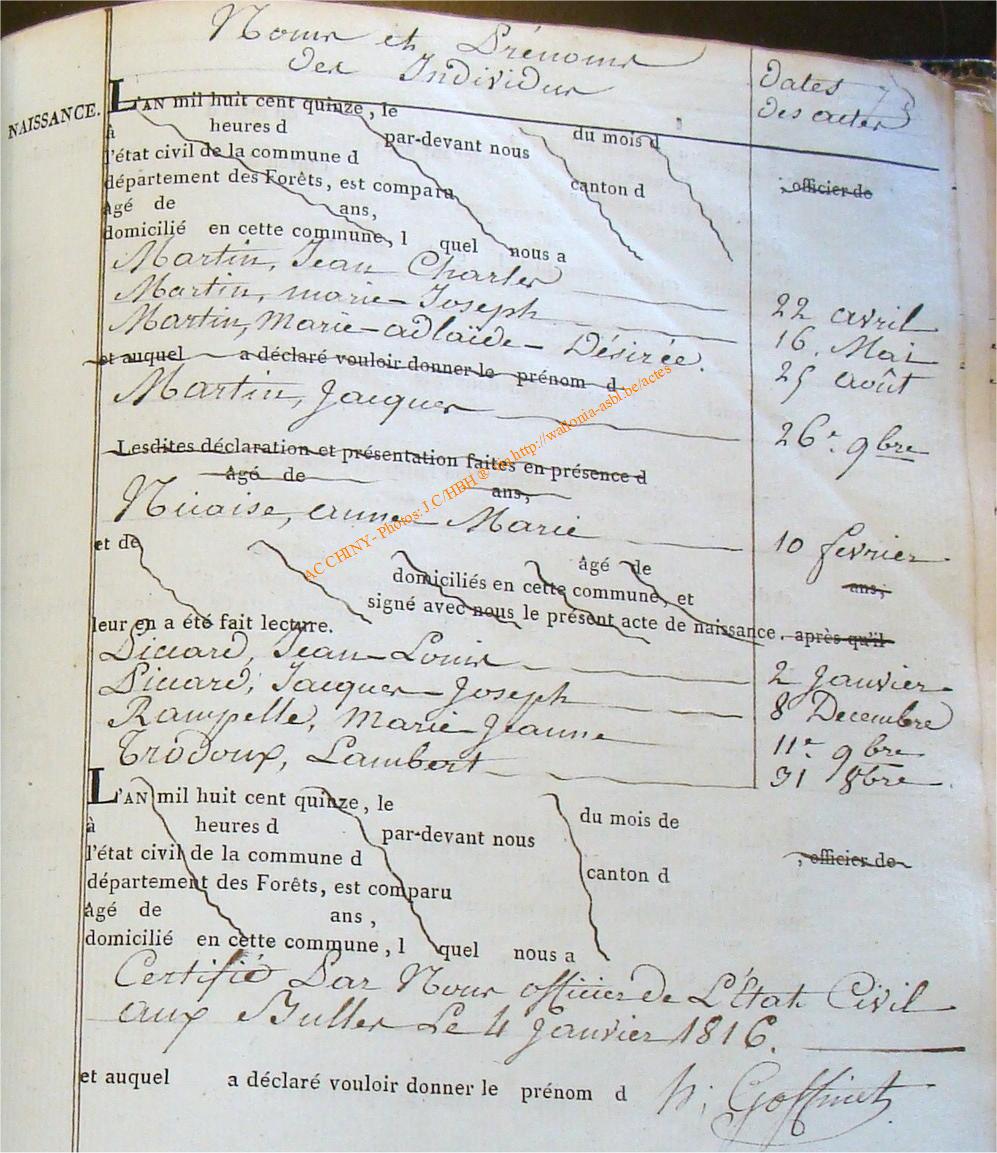 Noms et Prénoms
des Individus
dates
des actes
73
NAISSANCE.
L'AN mil huit cent quinze, le
du mois d
à heures d par-devant nous
, officier de
l'état civil de la commune d
canton d
département des Forêts, est comparu
âgé de ans,
domicilié en cette commune, l quel nous a
Martin, Jean Charles 22 avril
Martin, marie-Joseph 16. Mai
Martin, Marie-adlaïde-Désirée. 25 août
et auquel a déclaré vouloir donner le prénom d
Martin, Jacques 26e 9bre
Lesdites déclaration et présentation faites en présence d
âgé de ans,
Nicaise, anne-Marie 10 fevrier
et de âgé de ans,
domiciliés en cette commune, et
signé avec nous le présent acte de naissance, après qu'il
leur en a été fait lecture.
Piccard, Jean-Louis 2 Janvier
Piccard, Jacques-Joseph 8 Decembre
Rampelle, Marie-Jeanne 11e 9bre
Trodoux, Lambert 31 8bre
L'AN mil huit cent quinze, le
du mois de
à heures d par-devant nous
, officier de
l'état civil de la commune d
canton d
département des Forêts, est comparu
âgé de ans,
domicilié en cette commune, l quel nous a
Certifié Par Nous officier de L'État Civil
aux Bulles Le 4 Janvier 1816.
et auquel a déclaré vouloir donner le prénom d
h. Goffinet
AC CHINY - Photos: J.C/HBH ® sm http://wallonia-asbl.be/actes